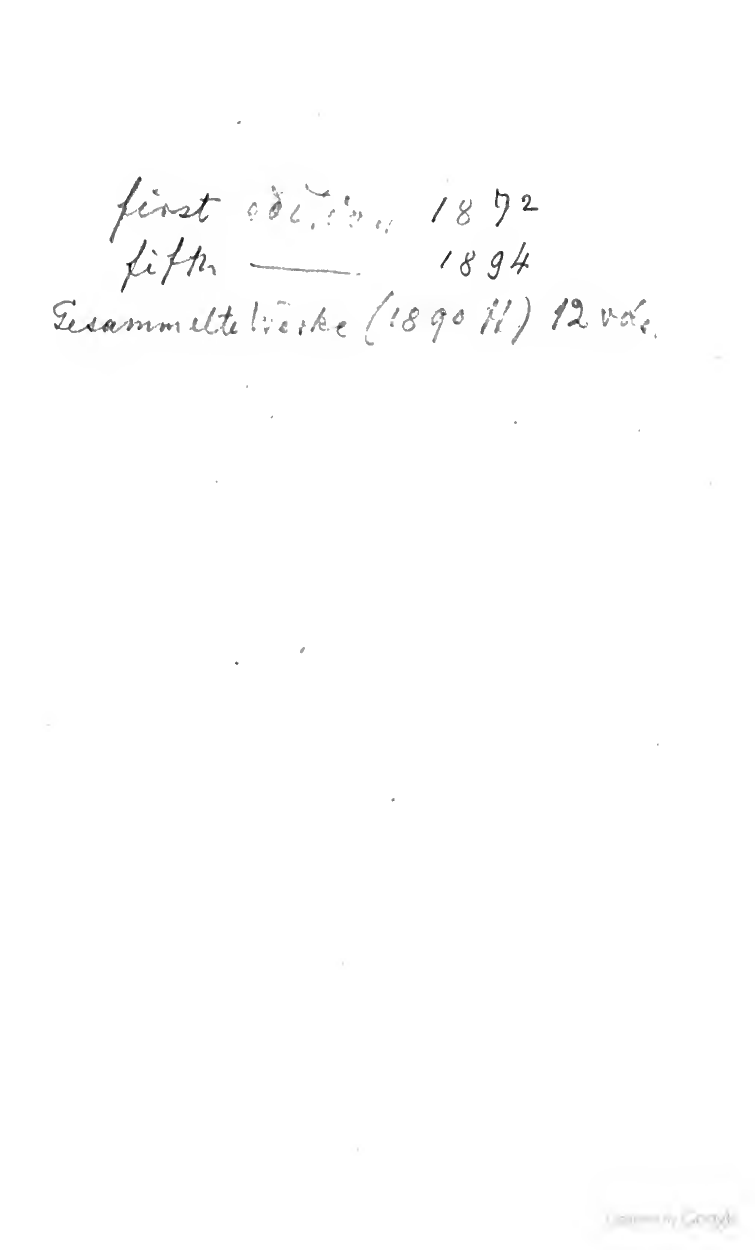 first edition 1872
fifth —— 1894
Gesammelte Werke (1890 ff) 12 vols.
Digitized by Google